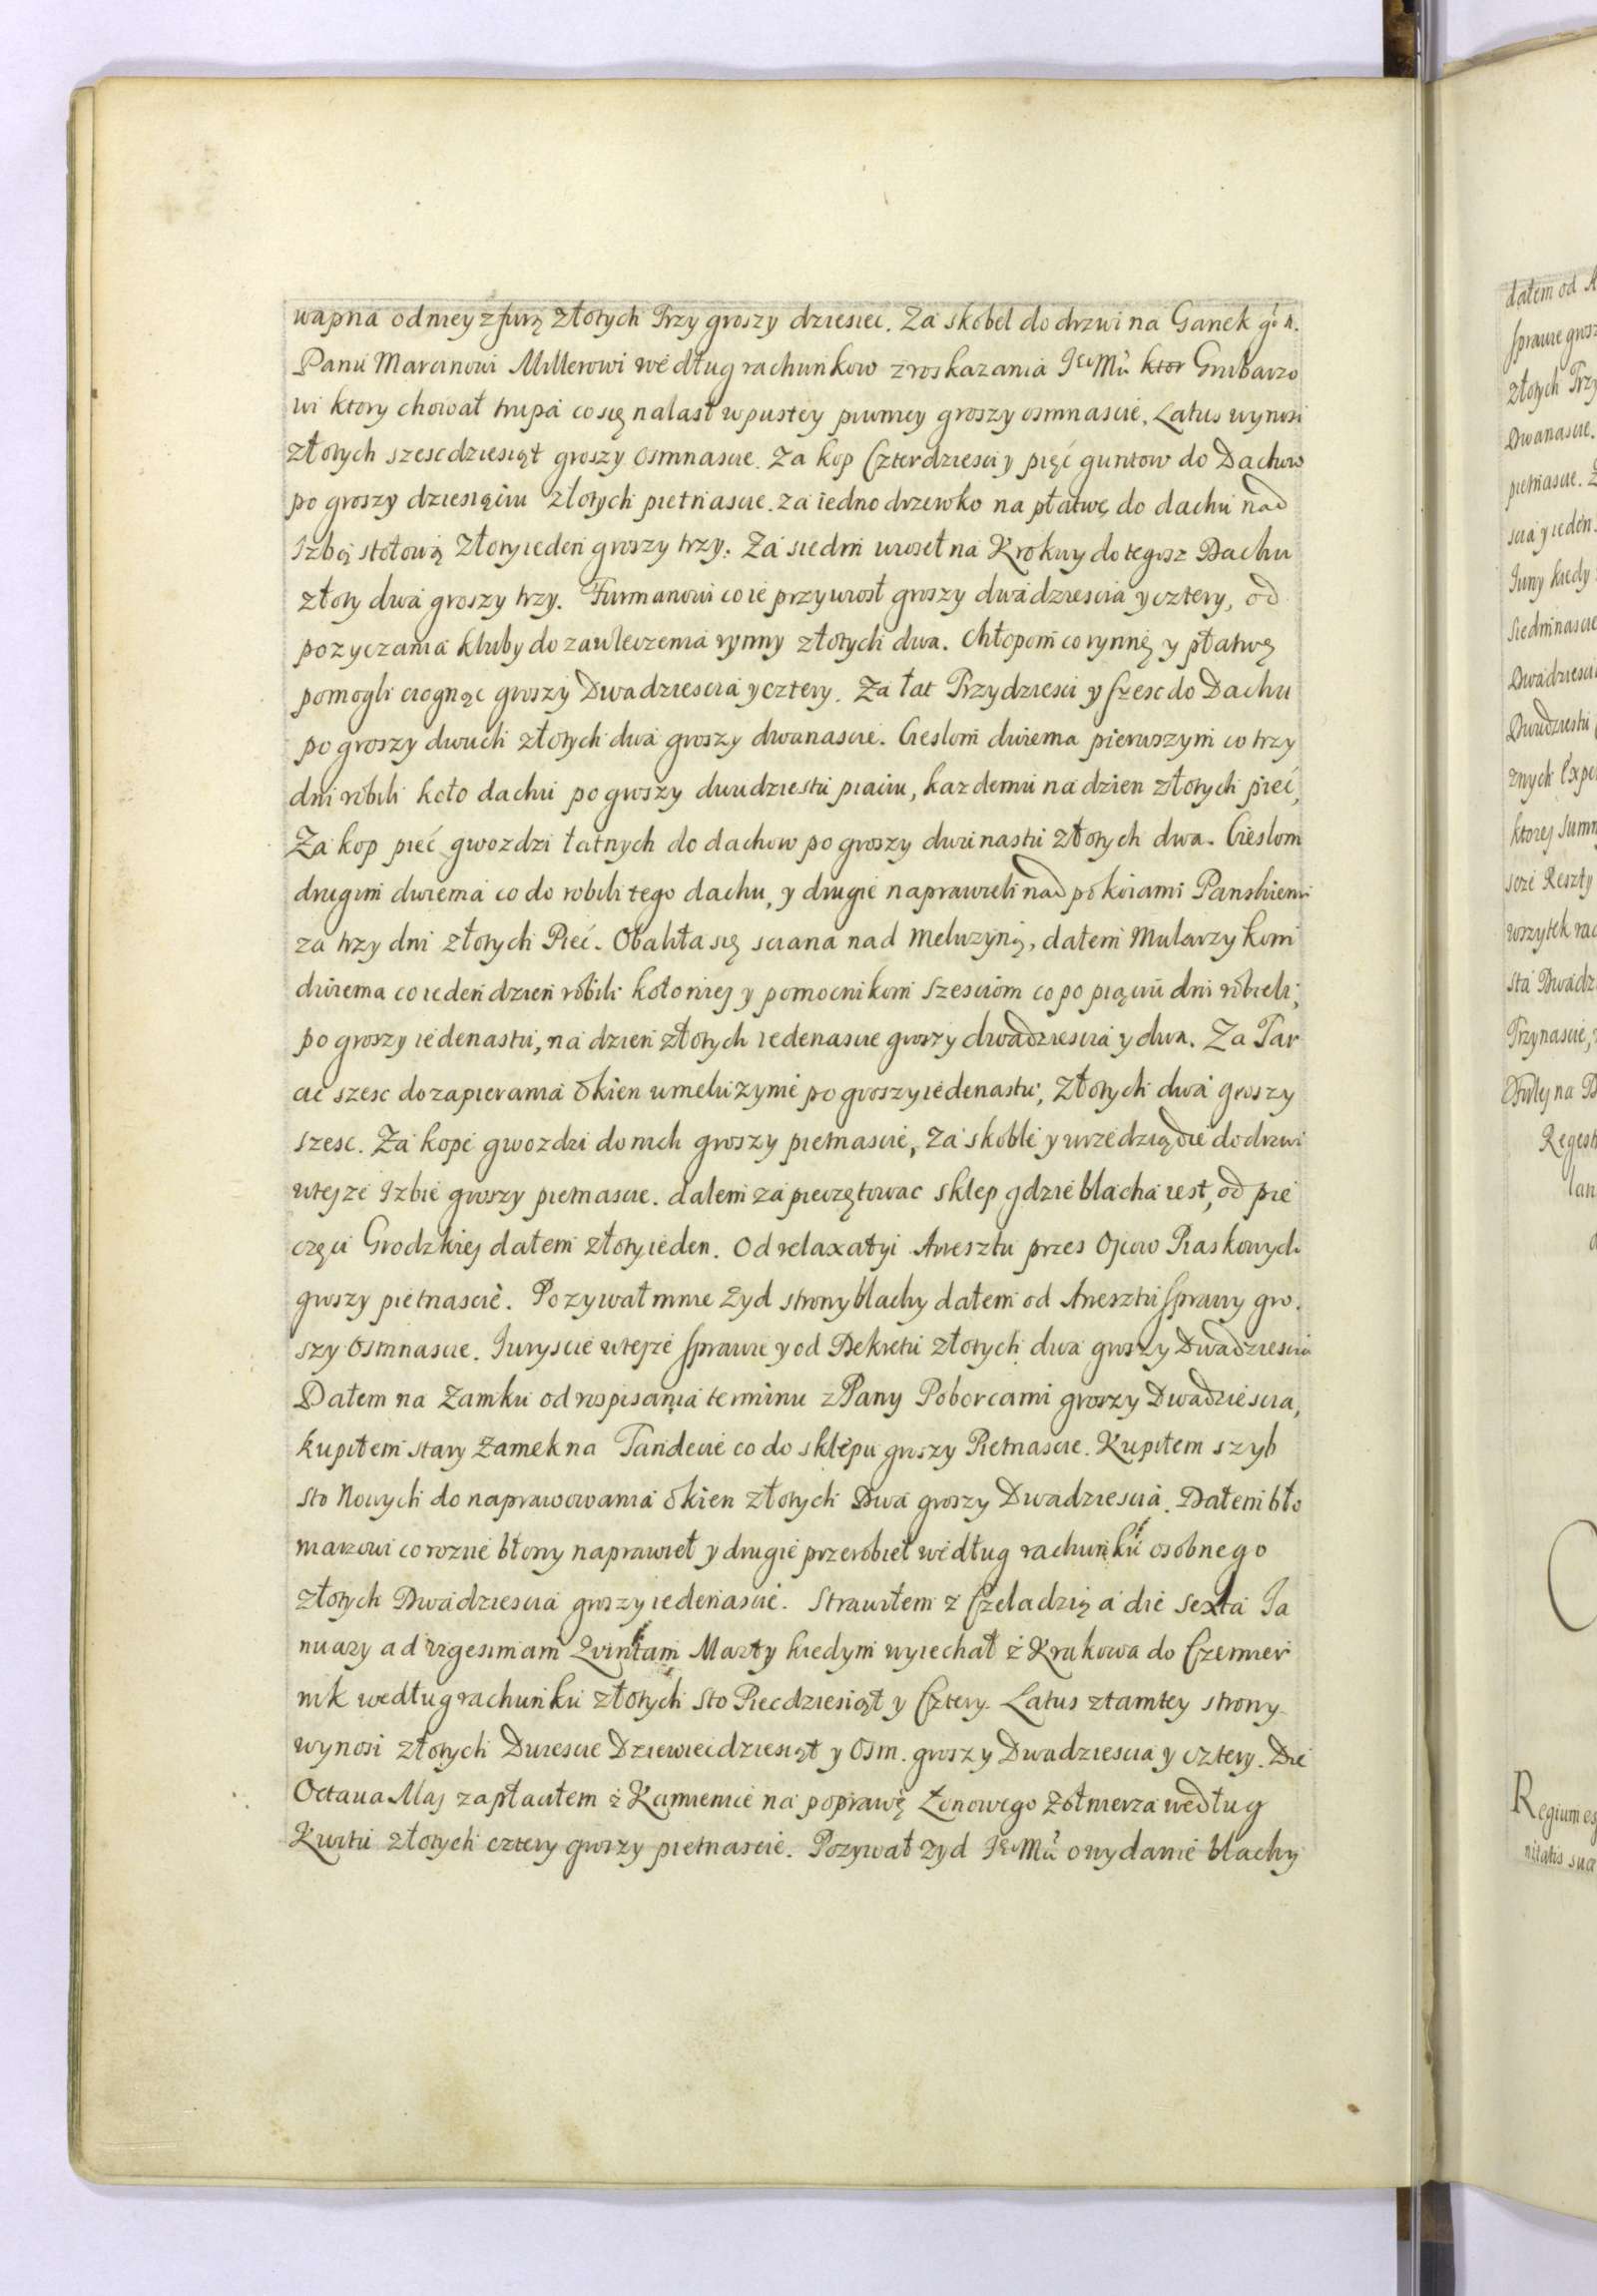 wapna odniey z furą złotych Trzy groszy dziesiec. Za skobel do drzwi na Ganek
Panu Marcinowi Millerowi według rachunkow z roskazania ktor Grubarzo
wi ktory chował trupa co się nalasł w pustey piwnicy groszy osmnascie. Latus wynosi
złotych szescdziesiąt groszy osmnascie. Za kop Czterdziesci y pięć guntow do Dachow
po groszy dziesiąciu złotych pietnascie. za iedno drzewko na płatwę do dachu nad
Izbą stołową złoty ieden groszy trzy. Za siedm wioseł na Krokwy do tegosz Dachu
złoty dwa groszy trzy. Furmanowi co ie przywiosł groszy dwadziescia y cztery, od
pozyczania kluby do zawleczenia rynny złotych dwa. Chłopom co rynnę y płatwę
pomogli ciognąc groszy Dwadziescia y cztery. Za łat Trzydziesci y szesc do Dachu
po groszy dwuch złotych dwa groszy dwanascie. Cieslom dwiema pierwszym co trzy
dni robili koło dachu po groszy dwudziestu piaciu, kazdemu na dzien złotych pieć,
Za kop pieć gwozdzi łatnych do dachow po groszy dwunastu złotych dwa. Cieslom
drugim dwiema co do robili tego dachu, y drugie naprawieli nad pokoiami Panskiemi
za trzy dni złotych Pieć. Obaliła się sciana nad Meluzyną, dałem Mularzykom
dwiema co ieden dzien robili koło niej y pomocnikom szesciom co po piąciu dni robieli,
po groszy iedenastu, na dzien złotych iedenascie groszy dwadziescia y dwa. Za Tar
cic szesc do zapierania okien u meluzynie po groszy iedenastu, złotych dwa groszy
szesc. Za kope gwozdzi do nich groszy pietnascie, za skoble y wrzedziądze do drzwi
wtejze Izbie groszy pietnascie. dalem zapieczętowac sklep gdzie blacha iest, od pie
częci Grodzkiej dałem złoty ieden. Od relaxatyi Aresztu przes Ojcow Piaskowych
groszy pietnascie. Pozywał mnie Zyd strony blachy dałem od Aresztu sprawy gro
szy Osmnascie. Juryscie wtejze sprawie y od Dekretu złotych dwa groszy Dwadziescia
Dałem na Zamku od rospisania terminu z Pany Poborcami groszy Dwadziescia,
kupiłem stary Zamek na Tandecie co do sklepu groszy Pietnascie. Kupiłem szyb
sto Nowych do naprawowania okien złotych Dwa groszy Dwadziescia. Dałem bło
niarzowi co rozne błony naprawieł y drugie przerobieł według rachunku osobnego
złotych Dwadziescia groszy iedenascie. Strawiłem z Czeladzią a die sexta Ja
nuary ad vigesimam Quintam Marty kiedym wyiechał z Krakowa do Czemier
nik według rachunku złotych Sto Piecdziesiąt y Cztery. Latus z tamtey strony
wynosi złotych Dwiescie Dziewiecdziesiąt y Osm. groszy Dwadziescia y cztery. Die
Octaua Maj zapłaciłem z Kamienice na poprawę Zonowego Zołnierza według
Kwitu złotych cztery groszy pietnascie. Pozywał zyd o wydanie blachy
dałem od
sprawie
złotych Trzy
Dwanascie.
pietnascie.
scia y ieden.
kiedy
Siedmnascie
Dwadziesci
znych
ktorej
Reszty
wszytek
sta Dwadz
Trzynascie,
na
Regest
Regium